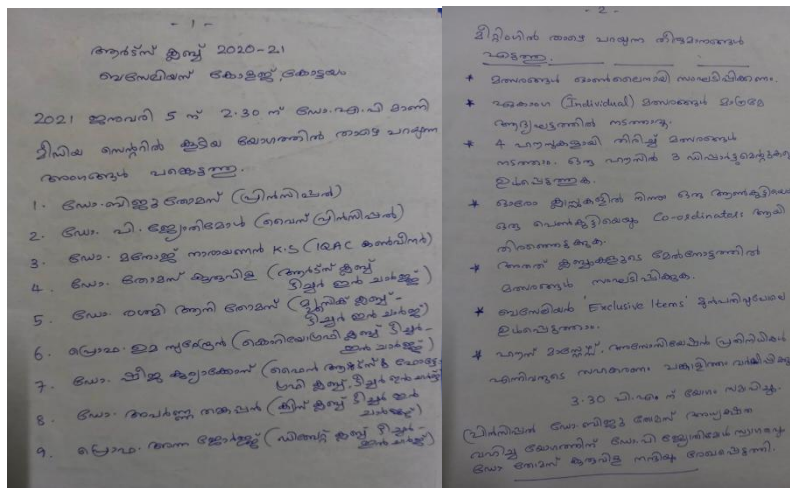 - 1 -
ആർട്സ് ക്ലബ്ബ് 2020-21
ബസേലിയസ് കോളജ്, കോട്ടയം
2021 ജനുവരി 5 ന് 2.30 ന് ഡോ. എ. പി മാണി
മീഡിയ സെന്ററിൽ കൂടിയ യോഗത്തിൽ താഴെ പറയുന്ന
അംഗങ്ങൾ പങ്കെടുത്തു.
1. ഡോ. ബിജു തോമസ് (പ്രിൻസിപ്പൽ)
2. ഡോ. പി. ജ്യോതിമോൾ (വൈസ് പ്രിൻസിപ്പൽ)
3. ഡോ. മനോജ് നാരായണൻ K.S (IQAC കൺവീനർ)
4. ഡോ. തോമസ് കുരുവിള (ആർട്സ് ക്ലബ്ബ്
ടീച്ചർ ഇൻ ചാർജ്ജ്)
5. ഡോ. രശ്മി ആനി തോമസ് (മ്യൂസിക് ക്ലബ്ബ് -
ടീച്ചർ ഇൻ ചാർജ്ജ്)
6. പ്രൊഫ. ഉമ സുരേന്ദ്രൻ (കൊറിയോഗ്രഫി ക്ലബ്ബ് ടീച്ചർ -
ഇൻ ചാർജ്ജ്)
7. ഡോ. ഷീജ കുര്യാക്കോസ് (ഫൈൻ ആർട്സ് & ഫോട്ടോ-
ഗ്രഫി ക്ലബ്ബ്, ടീച്ചർ ഇൻ ചാർജ്ജ്)
8. ഡോ. അപർണ്ണ തങ്കപ്പൻ (ക്വിസ് ക്ലബ്ബ് ടീച്ചർ ഇൻ
ചാർജ്ജ്)
9. പ്രൊഫ. അന്ന ജോർജ്ജ് (ഡിബേറ്റ് ക്ലബ്ബ് ടീച്ചർ -
ഇൻ ചാർജ്)
- 2 -
മീറ്റിംഗിൽ താഴെ പറയുന്ന തീരുമാനങ്ങൾ
എടുത്തു.
* മത്സരങ്ങൾ ഓൺലൈനായി സംഘടിപ്പിക്കണം.
* ഏകാംഗ (Individual) മത്സരങ്ങൾ മാത്രമേ
ആദ്യഘട്ടത്തിൽ നടത്താവൂ.
* 4 ഹൗസുകളായി തിരിച്ച് മത്സരങ്ങൾ
നടത്താം. ഒരു ഹൗസിൽ 3 ഡിപ്പാർട്ടുമെന്റുകളെ
ഉൾപ്പെടുത്തുക.
* ഓരോ ക്ലാസ്സുകളിൽ നിന്നും ഒരു ആൺകുട്ടിയെയും
ഒരു പെൺകുട്ടിയെയും Co-ordinators ആയി
തിരഞ്ഞെടുക്കുക.
* അതത് ക്ലബ്ബുകളുടെ മേൽനോട്ടത്തിൽ
മത്സരങ്ങൾ സംഘടിപ്പിക്കുക.
* ബസേലിയൻ 'Exclusive Items' മുൻപതിവുപോലെ
ഉൾപ്പെടുത്താം.
* ഹൗസ് മാസ്റ്റേഴ്സ്, അസോസിയേഷൻ പ്രതിനിധികൾ
എന്നിവരുടെ സഹകരണം പങ്കാളിത്തം
3.30 പി.എം ന് യോഗം സമാപിച്ചു.
പ്രിൻസിപ്പൽ ഡോ. ബിജു തോമസ് അദ്ധ്യക്ഷത
വഹിച്ച യോഗത്തിന് ഡോ. പി ജ്യോതിമോൾ സ്വാഗതവും
ഡോ തോമസ് കുരുവിള നന്ദിയും രേഖപ്പെടുത്തി.